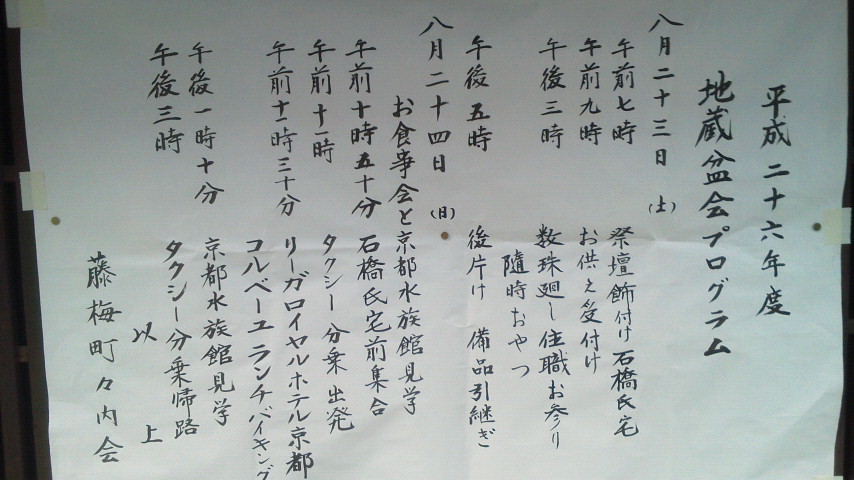 平成二十六年度
地蔵盆会プログラム
八月二十三日 (土)
午前七時 祭壇飾付け 石橋氏宅
午前九時 お供え受付け
午後三時 数珠廻し 住職お参り
随時おやつ
午後五時 後片け 備品引継ぎ
八月二十四日 (日)
お食事会と京都水族館見学
午前十時五十分 石橋氏宅前集合
午前十一時 タクシー分乗出発
午前十一時三十分 リーガロイヤルホテル京都
コルベーユ ランチバイキング
午後一時十分 京都水族館見学
午後三時 タクシー分乗帰路
以上
藤梅町々内会